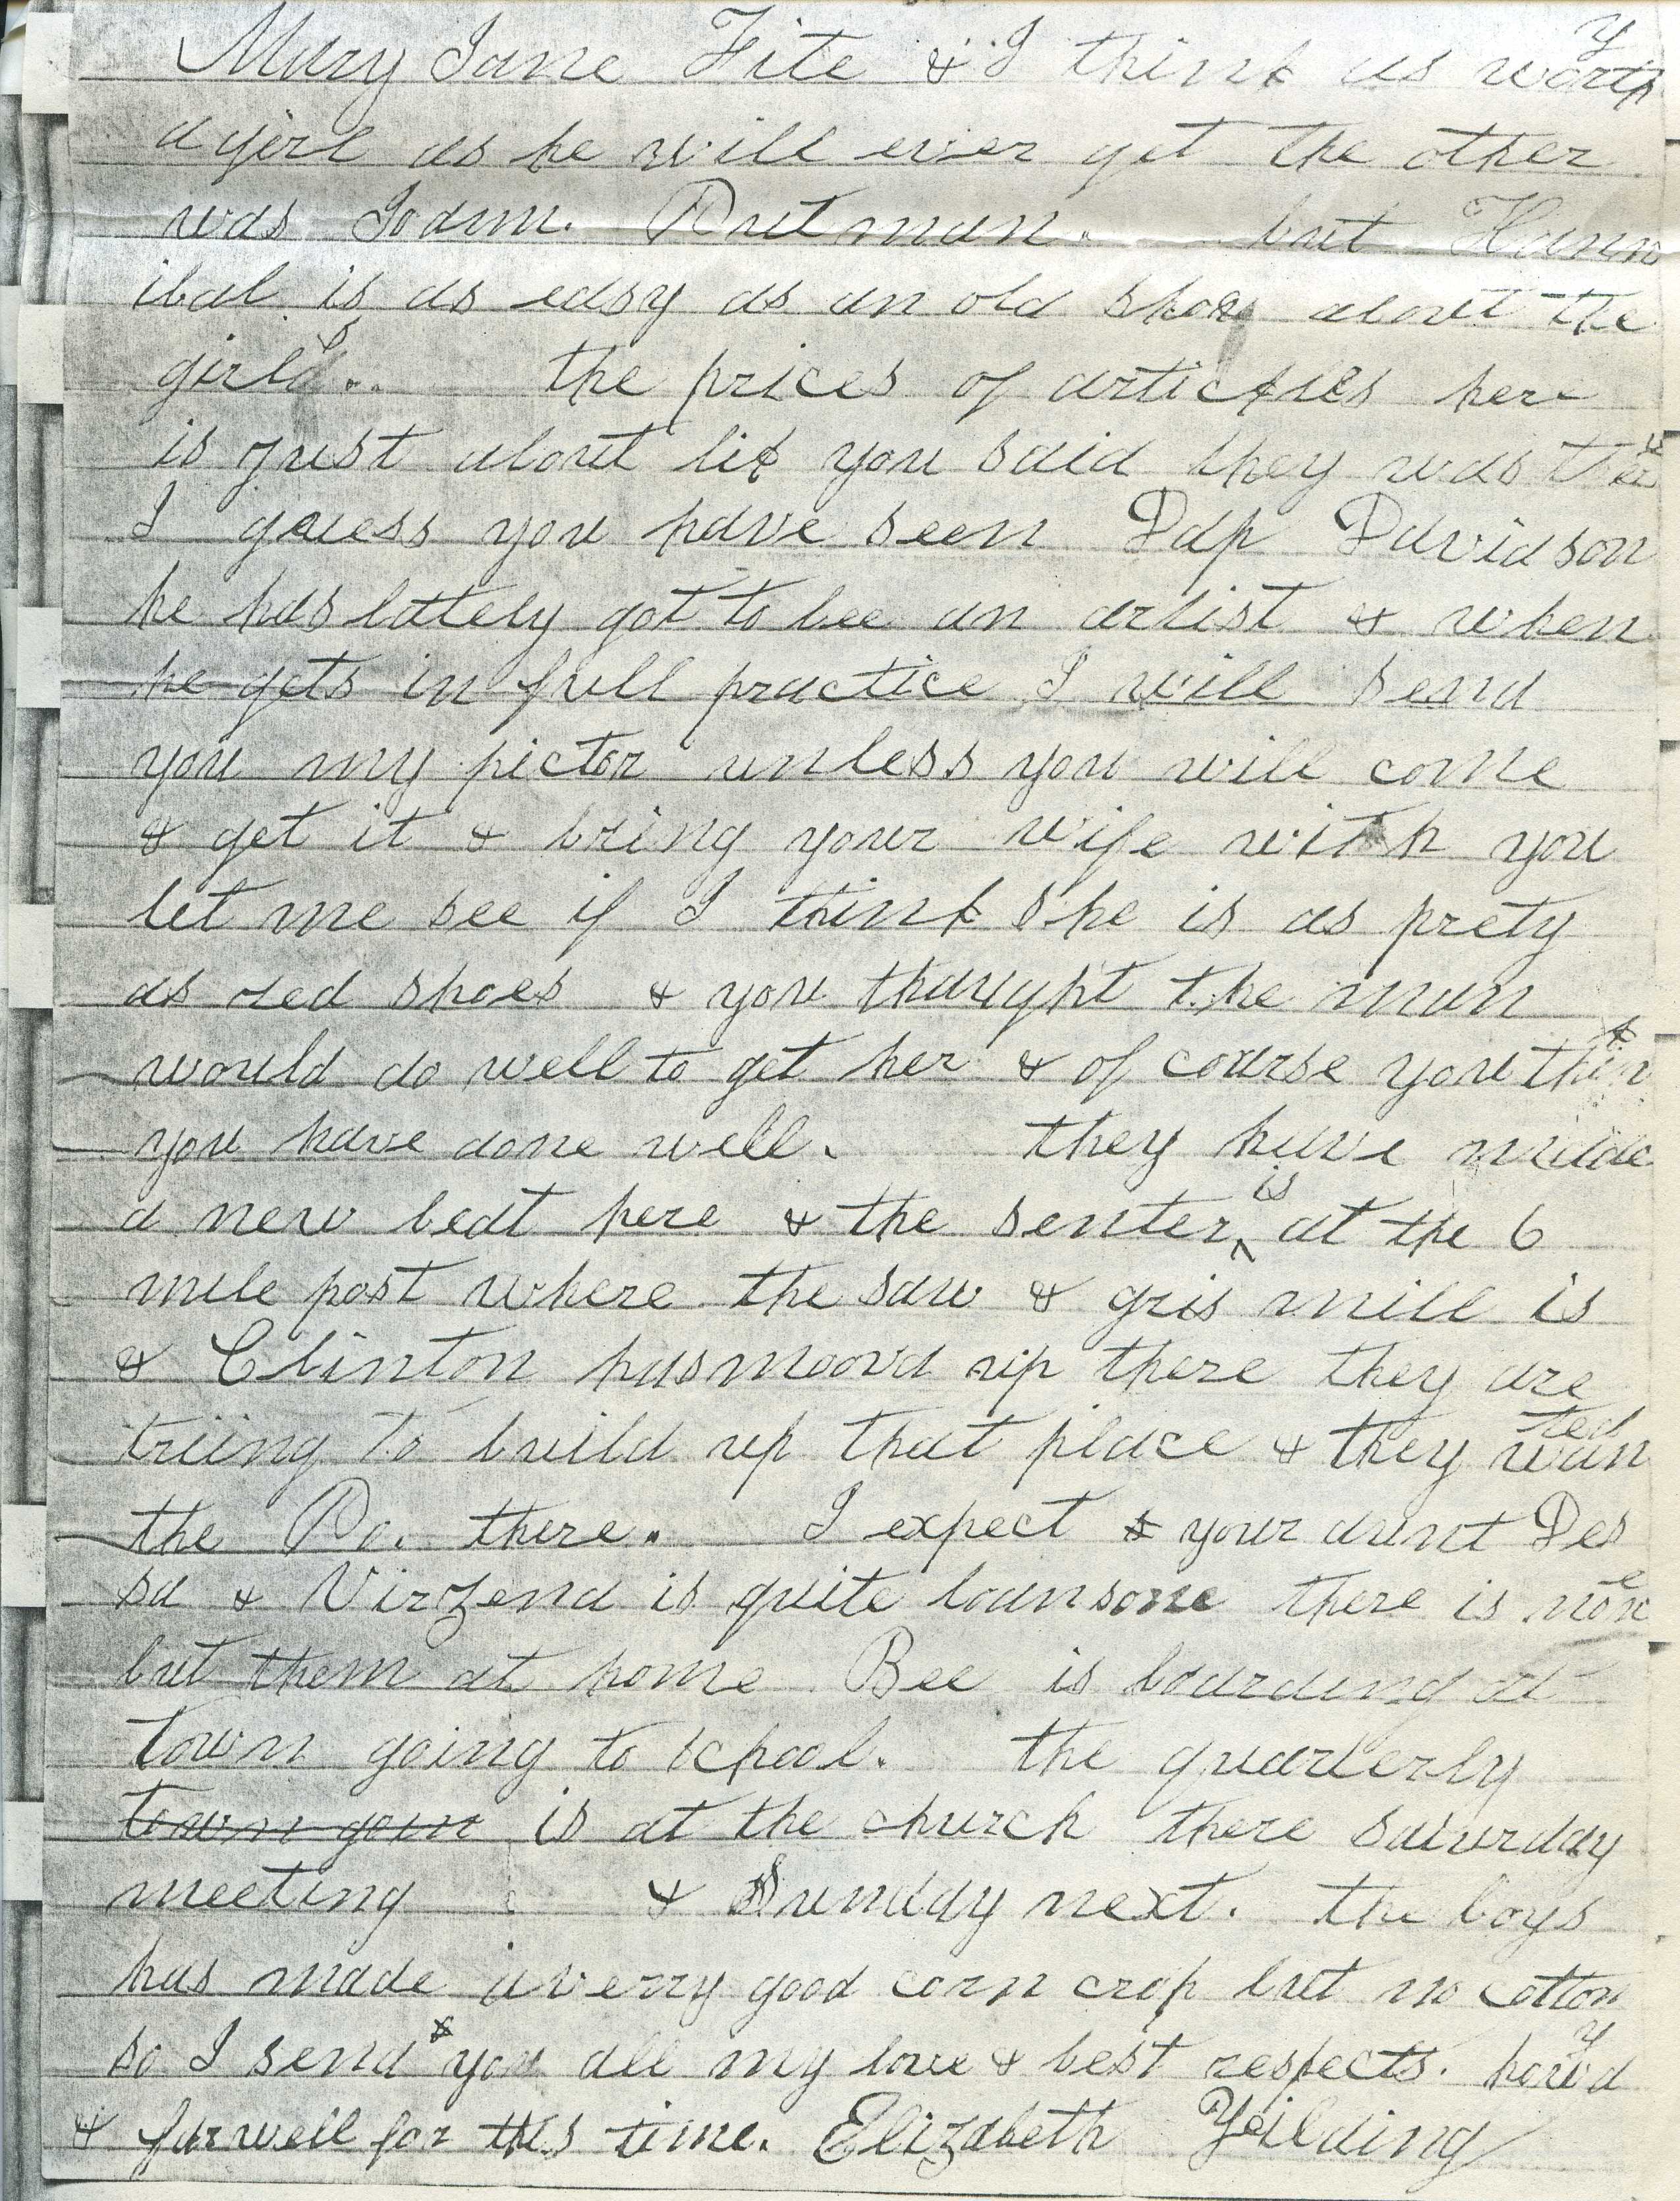 Mary Jane Fite & I think as worthy
a girl as he will ever get the other
was Joann. Putman. but Hann
ibal is as easy as an old shoe about the
girls.. the prices of articles here
is just about lik you said they was ther
I guess you have seen Pap Davidson
he has lately got to bee an artist & when
he gets in full practice I will send
you my pictor unless you will come
& get it & bring your wife with you
let me see if I think she is as prety
as red shoes & you thaught the man
would do well to get her & of course you think
you have done well. they have made
a new beat here & the senter is at the 6
mile post where the saw & gris mill is
& Clinton has moovd up there they are
triing to build up that place & they wanted
the Po. there. I expect your aunt Des
sa & Virzend is quite lounsome there is none
but them at home Bee is boarding at
town going to school. the quarterly
town goin is at the church there Saturday
meeting & Sunday next. the boys
has made a verry good corn crop but no cotton
so I send you all my love & best respects. howdy
& farwell for this time. Elizabeth Yeilding